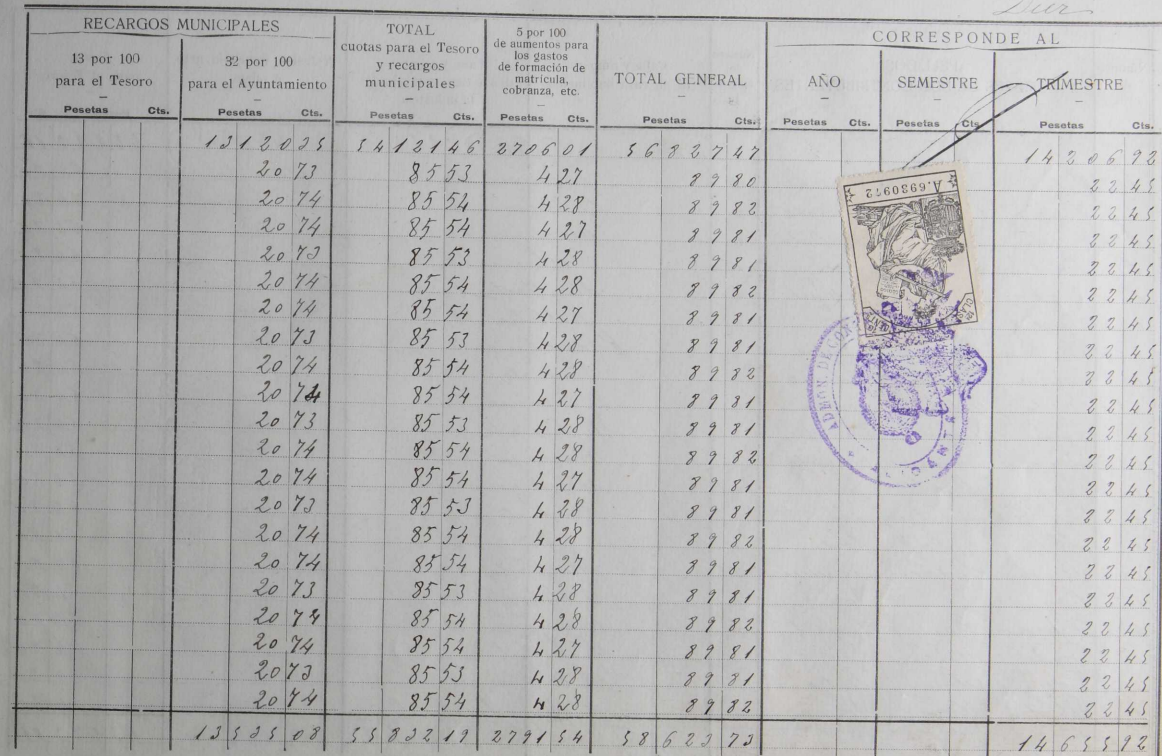 RECARGOS MUNICIPALES
13 por 100
para el Tesoro
Pesetas Cts.
32 por 100
para el Ayuntamiento
Pesetas Cts.
TOTAL
cuotas para el Tesoro
y recargos
municipales
Pesetas Cts.
5 por 100
de aumentos para
los gastos
de formación de
matrícula,
cobranza, etc.
Pesetas Cts.
TOTAL GENERAL
Pesetas Cts.
CORRESPONDE AL
AÑO
Pesetas Cts.
SEMESTRE
Pesetas Cts.
TRIMESTRE
Pesetas Cts.
13120 35 54121 46 2706 01 56827 47 14206 92
20 73 85 53 4 27 89 80 22 45
20 74 85 54 4 28 89 82 22 45
20 74 85 54 4 27 89 81 22 45
20 73 85 53 4 28 89 81 22 45
20 74 85 54 4 28 89 82 22 45
20 74 85 54 4 27 89 81 22 45
20 73 85 53 4 28 89 81 22 45
20 74 85 54 4 28 89 82 22 45
20 74 85 54 4 27 89 81 22 45
20 73 85 53 4 28 89 81 22 45
20 74 85 54 4 28 89 82 22 45
20 74 85 54 4 27 89 81 22 45
20 73 85 53 4 28 89 81 22 45
20 74 85 54 4 28 89 82 22 45
20 74 85 54 4 27 89 81 22 45
20 73 85 53 4 28 89 81 22 45
20 74 85 54 4 28 89 82 22 45
20 74 85 54 4 27 89 81 22 45
20 73 85 53 4 28 89 81 22 45
20 74 85 54 4 28 89 82 22 45
13535 08 55832 19 2791 54 58623 73 14655 92
A.6930972
ADMON. DE CON